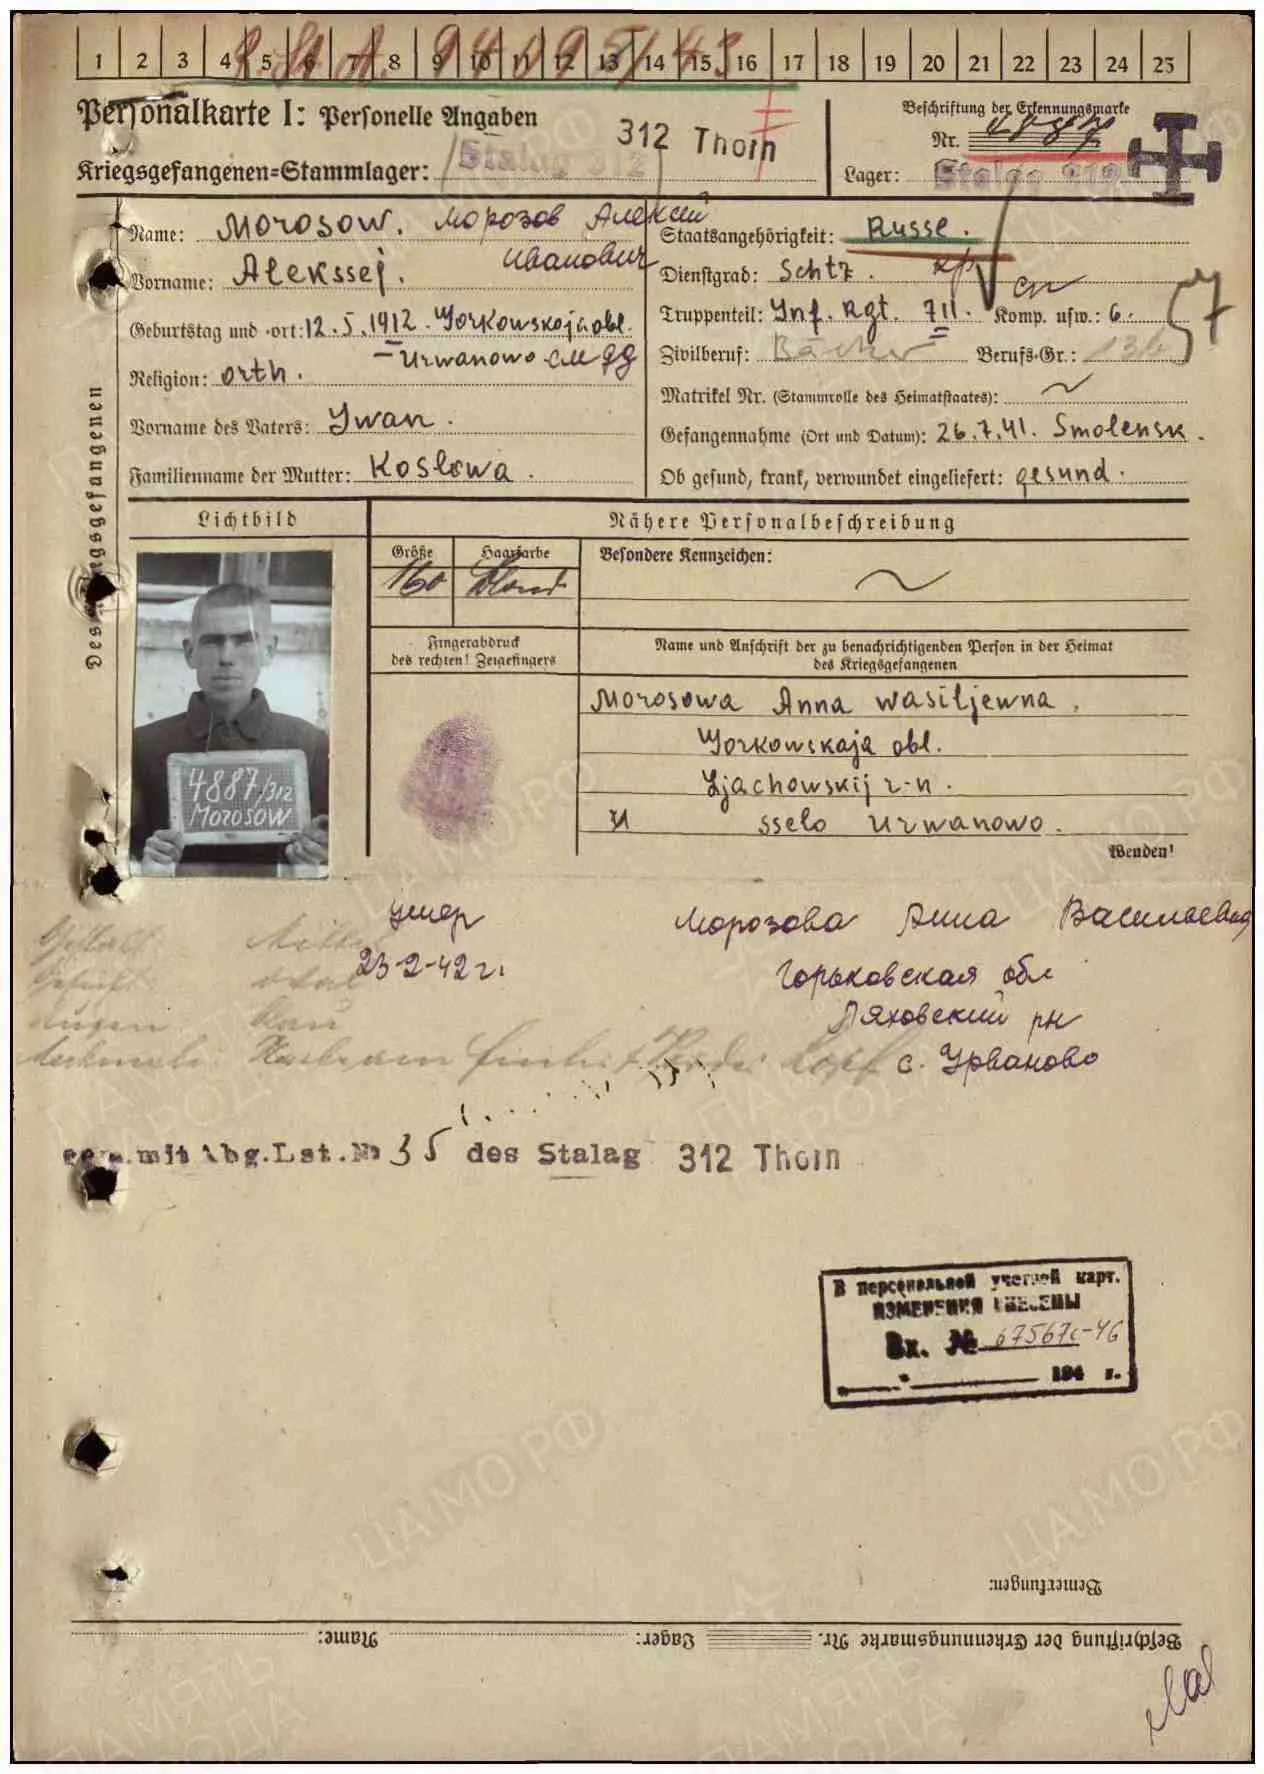 1 2 3 4 5 6 7 8 9 10 11 12 13 14 15 16 17 18 19 20 21 22 23 24 25
Personalkarte I: Personelle Angaben
312 Thorn
Kriegsgefangenen-Stammlager: Stalag 312
Beschriftung der Erkennungsmarke
Nr. 4887
Lager: Stalag 312
Des Kriegsgefangenen
Name: Morosow. Морозов Алексей
Иванович
Vorname: Alekssej.
Geburtstag und -ort: 12.5.1912. Gorkowskaja obl.
Urwanowo
Religion: orth.
Vorname des Vaters: Iwan.
Familienname der Mutter: Koslowa.
Staatsangehörigkeit: Russe.
Dienstgrad: Schtz.
Truppenteil: Inf. Rgt. 711. Komp. usw.: 6.
Zivilberuf: Bäcker Berufs-Gr.: 134
57
Matrikel Nr. (Stammrolle des Heimatstaates): ~
Gefangennahme (Ort und Datum): 26.7.41. Smolensk.
Ob gesund, krank, verwundet eingeliefert: gesund.
Lichtbild
Nähere Personalbeschreibung
Größe
160
Haarfarbe
blond
Besondere Kennzeichen:
~
Fingerabdruck
des rechten! Zeigefingers
Name und Anschrift der zu benachrichtigenden Person in der Heimat
des Kriegsgefangenen
Morosowa Anna Wasiljewna.
Gorkowskaja obl.
Ljachowskij r-n.
sselo Urwanowo.
Wenden!
4887/312
MOROSOW
умер
23-2-42 г.
Морозова Анна Васильевна
Горьковская обл
Ляховский рн
с. Урваново
Augen blau
gem. mit Abg.Lst.No 35 des Stalag 312 Thorn
В персональной учетной карт.
ИЗМЕНЕНИЯ ВНЕСЕНЫ
Вх. № 67567с-46
194 г.
Bemerkungen:
Beschriftung der Erkennungsmarke Nr. Lager: Name:
ЦАМО.РФ
ПАМЯТЬ
НАРОДА